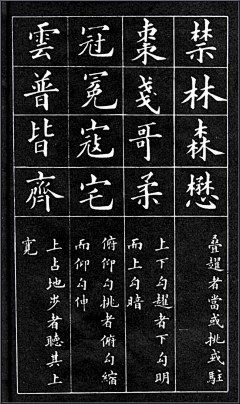 禁林森懋
疊趯者當或挑或駐
棗戔哥柔
上下勾趯者下勾明
而上勾暗
冠冕寇宅
俯仰勾挑者俯勾縮
而仰勾伸
雲普皆齊
上占地步者聽其上
寬